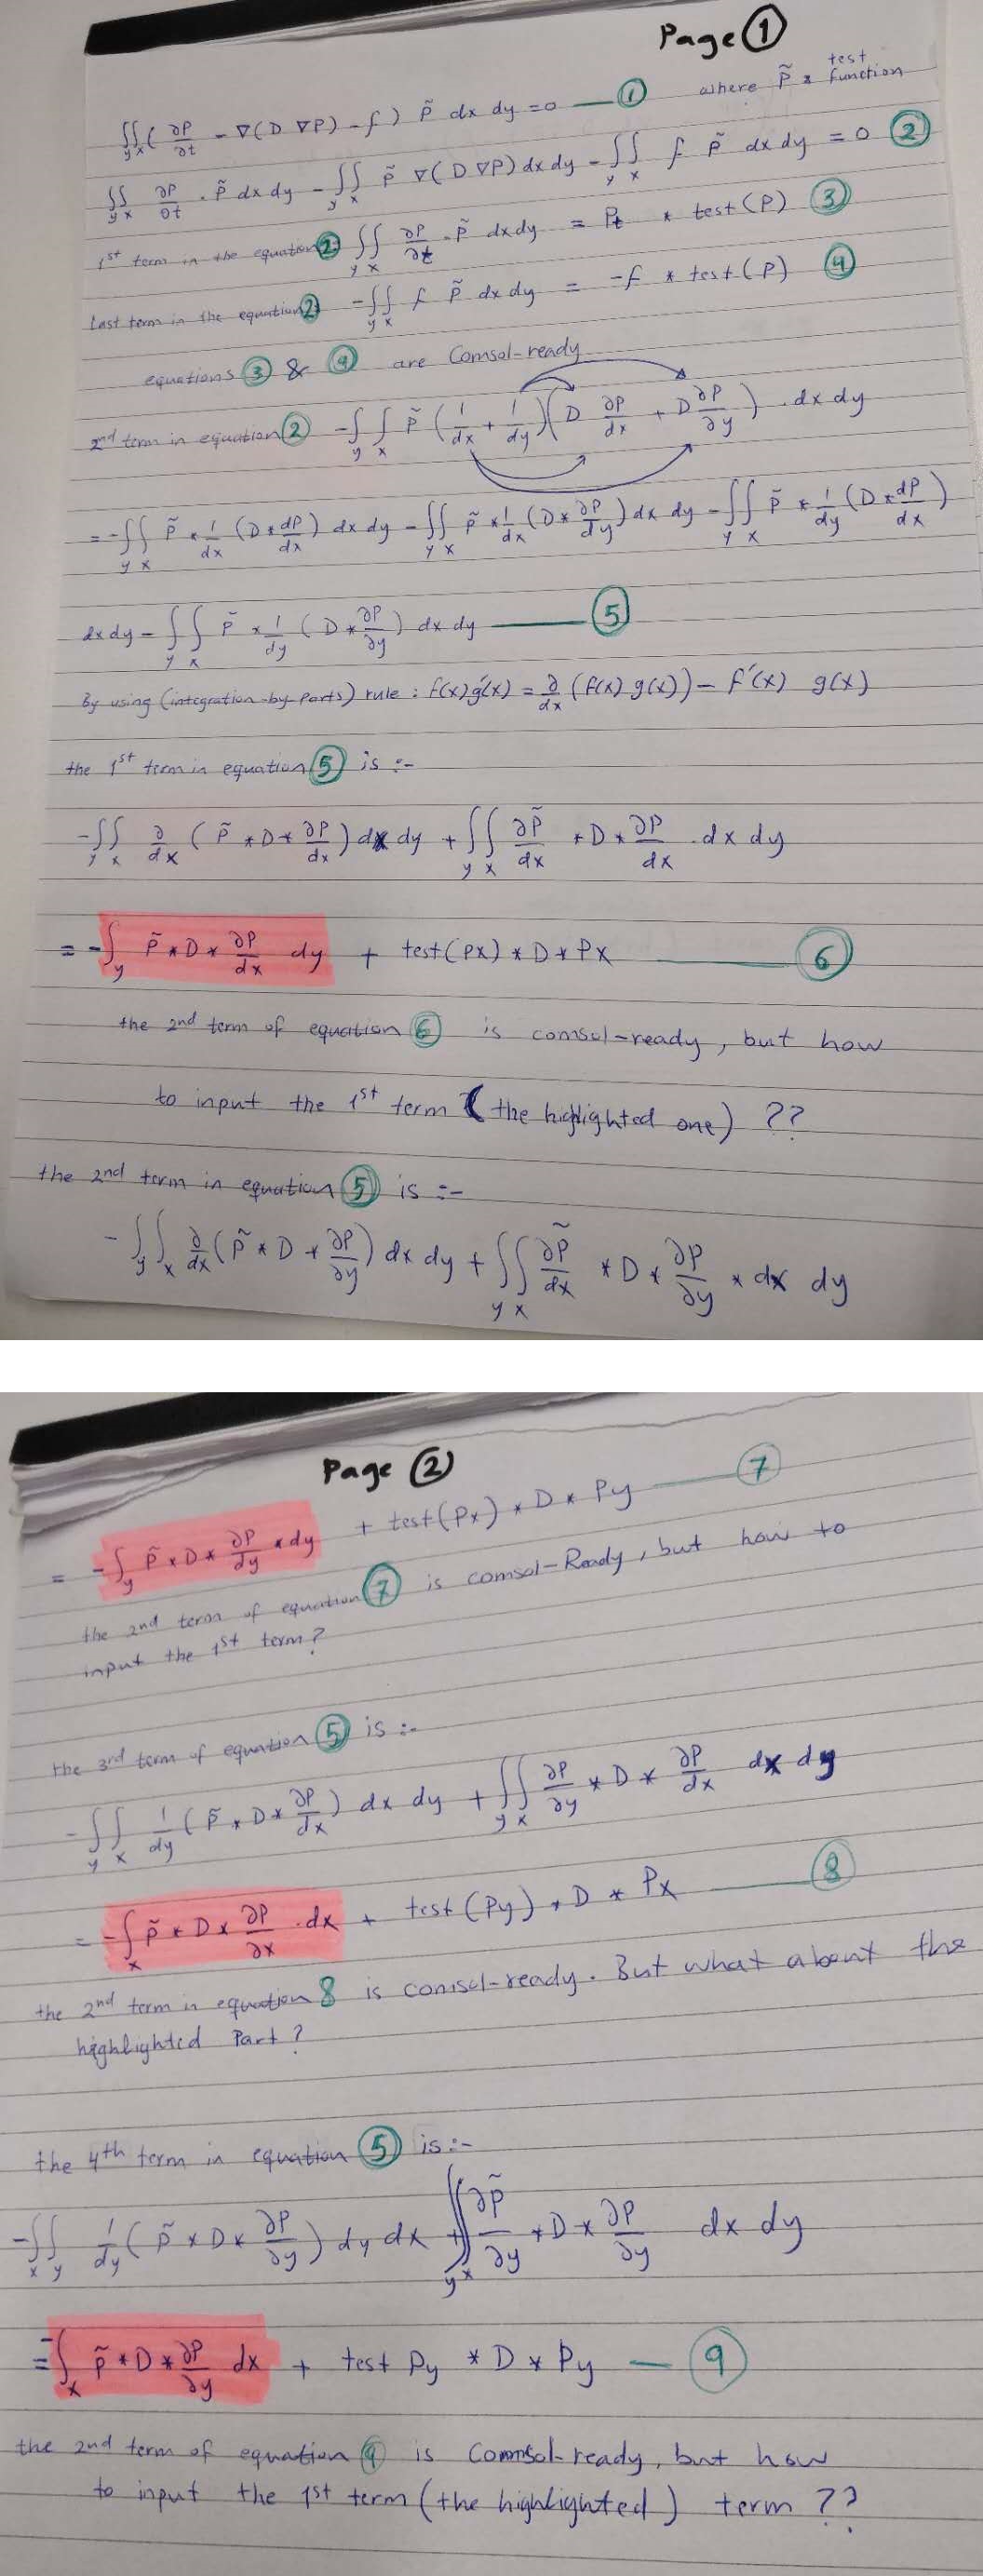 Page ①
∬_{y x} ( ∂P/∂t - ∇(D ∇P) - f ) P̃ dx dy = 0 — ① where P̃ is test function
∬_{y x} ∂P/∂t . P̃ dx dy - ∬_{y x} P̃ ∇(D ∇P) dx dy - ∬_{y x} f P̃ dx dy = 0 ②
1st term in the equation ②: ∬_{y x} ∂P/∂t . P̃ dx dy = Pt * test(P) ③
Last term in the equation ②: -∬_{y x} f P̃ dx dy = -f * test(P) ④
equations ③ & ④ are Comsol-ready
2nd term in equation ② -∬_{y x} P̃ (1/dx + 1/dy)(D ∂P/dx + D ∂P/∂y) . dx dy
= -∬_{y x} P̃ * 1/dx (D * dP/dx) dx dy - ∬_{y x} P̃ * 1/dx (D * ∂P/dy) dx dy - ∬_{y x} P̃ * 1/dy (D * dP/dx)
dx dy - ∬_{y x} P̃ * 1/dy (D * ∂P/∂y) dx dy — ⑤
By using (integration-by parts) rule : f(x) g'(x) = ∂/dx (f(x) g(x)) - f'(x) g(x)
the 1st term in equation ⑤ is :-
-∬_{y x} ∂/dx (P̃ * D * ∂P/dx) dx dy + ∬_{y x} ∂P̃/dx * D * ∂P/dx . dx dy
= -∫_y P̃ * D * ∂P/dx dy + test(Px) * D * Px — ⑥
the 2nd term of equation ⑥ is comsol-ready, but how
to input the 1st term (the highlighted one) ??
the 2nd term in equation ⑤ is :-
-∬_{y x} ∂/dx (P̃ * D * ∂P/∂y) dx dy + ∬_{y x} ∂P̃/dx * D * ∂P/∂y * dx dy
Page ②
= -∫_y P̃ * D * ∂P/dy * dy + test(Px) * D * Py — ⑦
the 2nd term of equation ⑦ is comsol-Ready, but how to
input the 1st term?
the 3rd term of equation ⑤ is :-
-∬_{y x} 1/dy (P̃ * D * ∂P/dx) dx dy + ∬_{y x} ∂P/∂y * D * ∂P/dx dx dy
= -∫_x P̃ * D * ∂P/∂x . dx + test(Py) * D * Px — ⑧
the 2nd term in equation 8 is comsol-ready. But what about the
highlighted Part ?
the 4th term in equation ⑤ is :-
-∬_{x y} 1/dy (P̃ * D * ∂P/∂y) dy dx + ∬_{y x} ∂P̃/∂y * D * ∂P/∂y dx dy
= -∫_x P̃ * D * ∂P/∂y dx + test Py * D * Py — ⑨
the 2nd term of equation ⑨ is Commsol-ready, but how
to input the 1st term (the highlighted) term ??